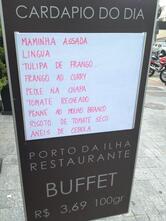 CARDAPIO DO DIA
MAMINHA ASSADA
LINGUA
TULIPA DE FRANGO
FRANGO AO CURRY
PEIXE NA CHAPA
TOMATE RECHEADO
PENNE AO MOLHO BRANCO
RISOTO DE TOMATE SECO
ANEIS DE CEBOLA
PORTO DA ILHA
RESTAURANTE
BUFFET
R$ 3,69 100gr